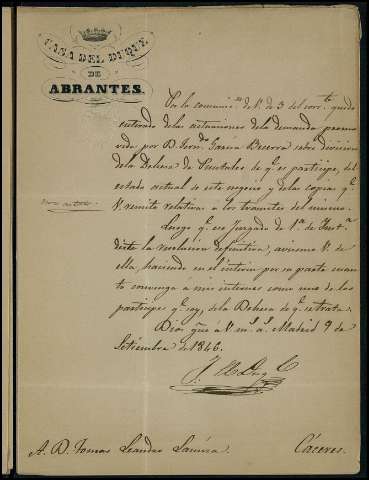 CASA DEL DUQUE
DE
ABRANTES.
Por la comunic.on de V. de 3 del corr.te quedo
enterado de las actuaciones de la demanda promo
vida por D. Fern.do Garcia Becerra sobre division
de la Dehesa de Puertales de q.e es participe, del
estado actual de este negocio y de las copias q.e
V. remite relativas a los tramites del mismo.
Luego q.e ese Juzgado de 1.a de Inst.a
dicte la resolucion definitiva, aviseme V. de
ella, haciendo en el interin por su parte cuan
to convenga a mis intereses como uno de los
participes q.e soy, de la Dehesa de q.e se trata.
Dios gue a V. m.s a.s Madrid 9 de
Setiembre de 1846.
A. D. Tomas Leandro Cáceres.